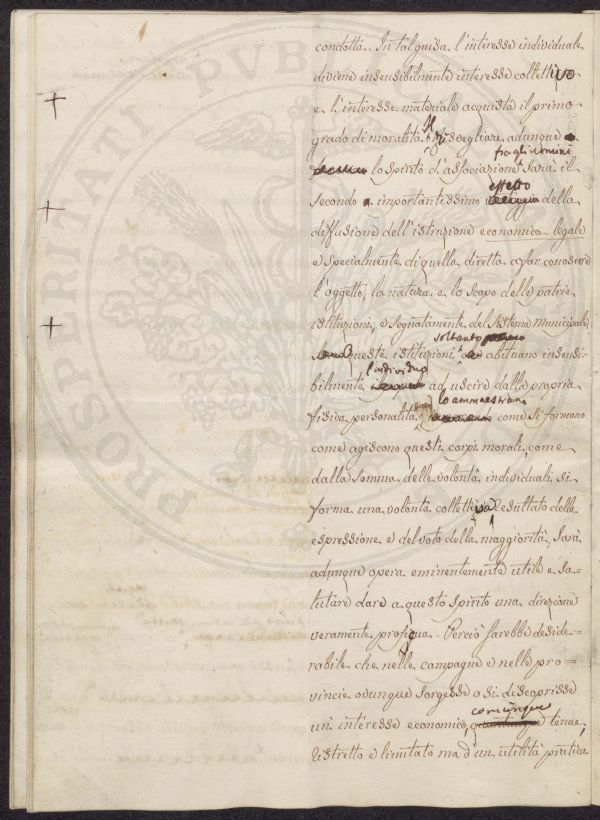 condotta. In tal guisa l'interesse individuale
diviene insensibilmente interesse collettivo
e l'interesse materiale acquista il primo
grado di moralità. Il risvegliare adunque
fra gli uomini
lo spirito d'associazione sarà il
effetto
secondo importantissimo della
diffusione dell'istruzione economico legale
e specialmente di quella diretta a far conoscere
l'oggetto, la natura e lo scopo delle patrie
istituzioni, e segnatamente del Sistema Municipale
soltanto
queste istituzioni abituano insensi-
l'individuo
bilmente ad uscire dalla propria
lo ammaestrano
fisica personalità come si formano
come agiscono questi corpi morali, come
dalla somma delle volontà individuali si
forma una volontà collettiva Resultato della
espressione e del voto della maggiorità, Sarà
adunque opera eminentemente utile e sa-
lutare dare a questo spirito una direzione
veramente proficua. Perciò sarebbe deside-
rabile che nelle campagne e nelle pro-
vincie ovunque sorgesse o si discoprisse
comunque
un interesse economico, tenue,
ristretto e limitato ma d'un utilità pratica
PROSPERITATI PUBLICAE